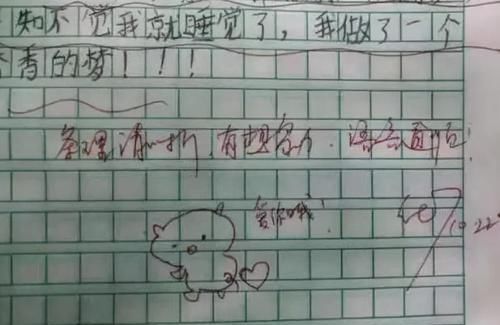 知不觉我就睡觉了，我做了一个
香的梦！！！
条理清晰，有想象力，语言直白！
爱你哦！
10.22